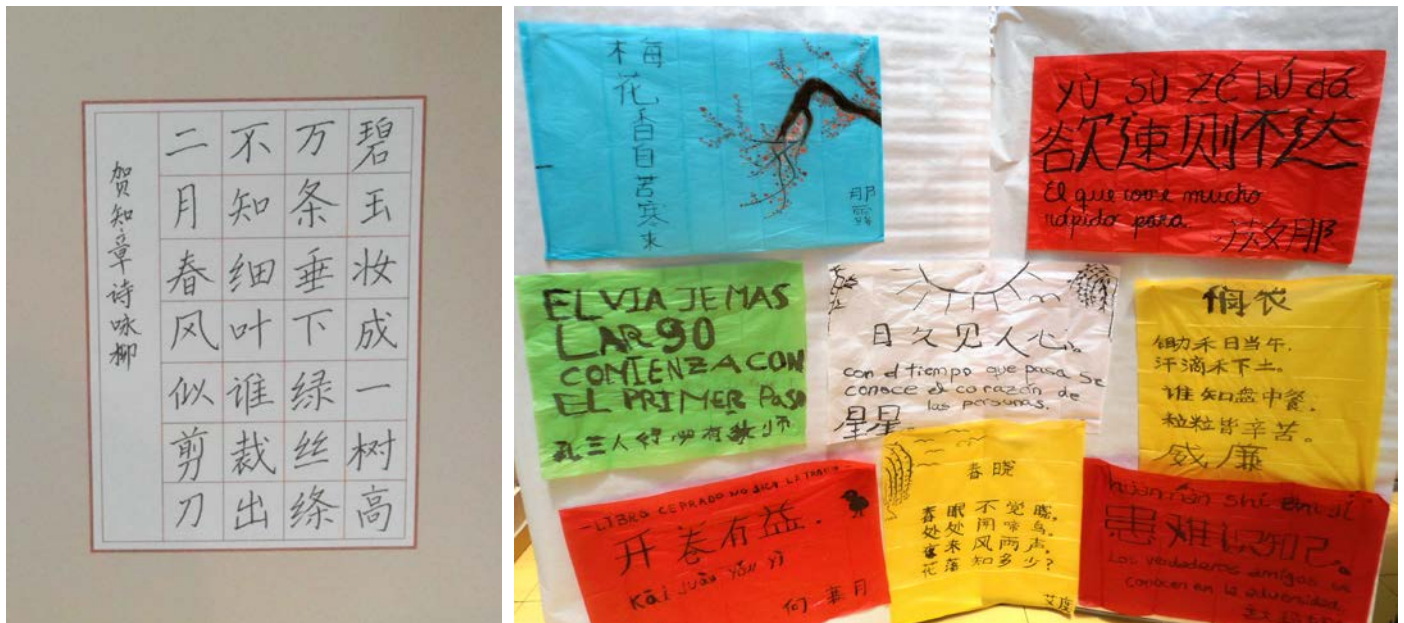 碧玉妆成一树高
万条垂下绿丝绦
不知细叶谁裁出
二月春风似剪刀
贺知章诗咏柳
梅花香自苦寒来
那
yù sù zé bú dá
欲速则不达
El que corre mucho
rápido para.
EL VIAJE MAS
LARGO
COMIENZA CON
EL PRIMER PASO
三人行必有
日久见人心。
con el tiempo que pasa se
conoce el corazón de
las personas.
星星
悯农
锄禾日当午,
汗滴禾下土。
谁知盘中餐,
粒粒皆辛苦。
威廉
-LIBRO CERRADO NO SACA LETRADO-
开卷有益.
Kāi juàn yǒu yì
何 月
春晓
春眠不觉晓,
处处闻啼鸟。
夜来风雨声,
花落知多少?
艾度
huànnàn shí zhī jǐ
患难识知己。
Los verdaderos amigos se
conocen en la adversidad.